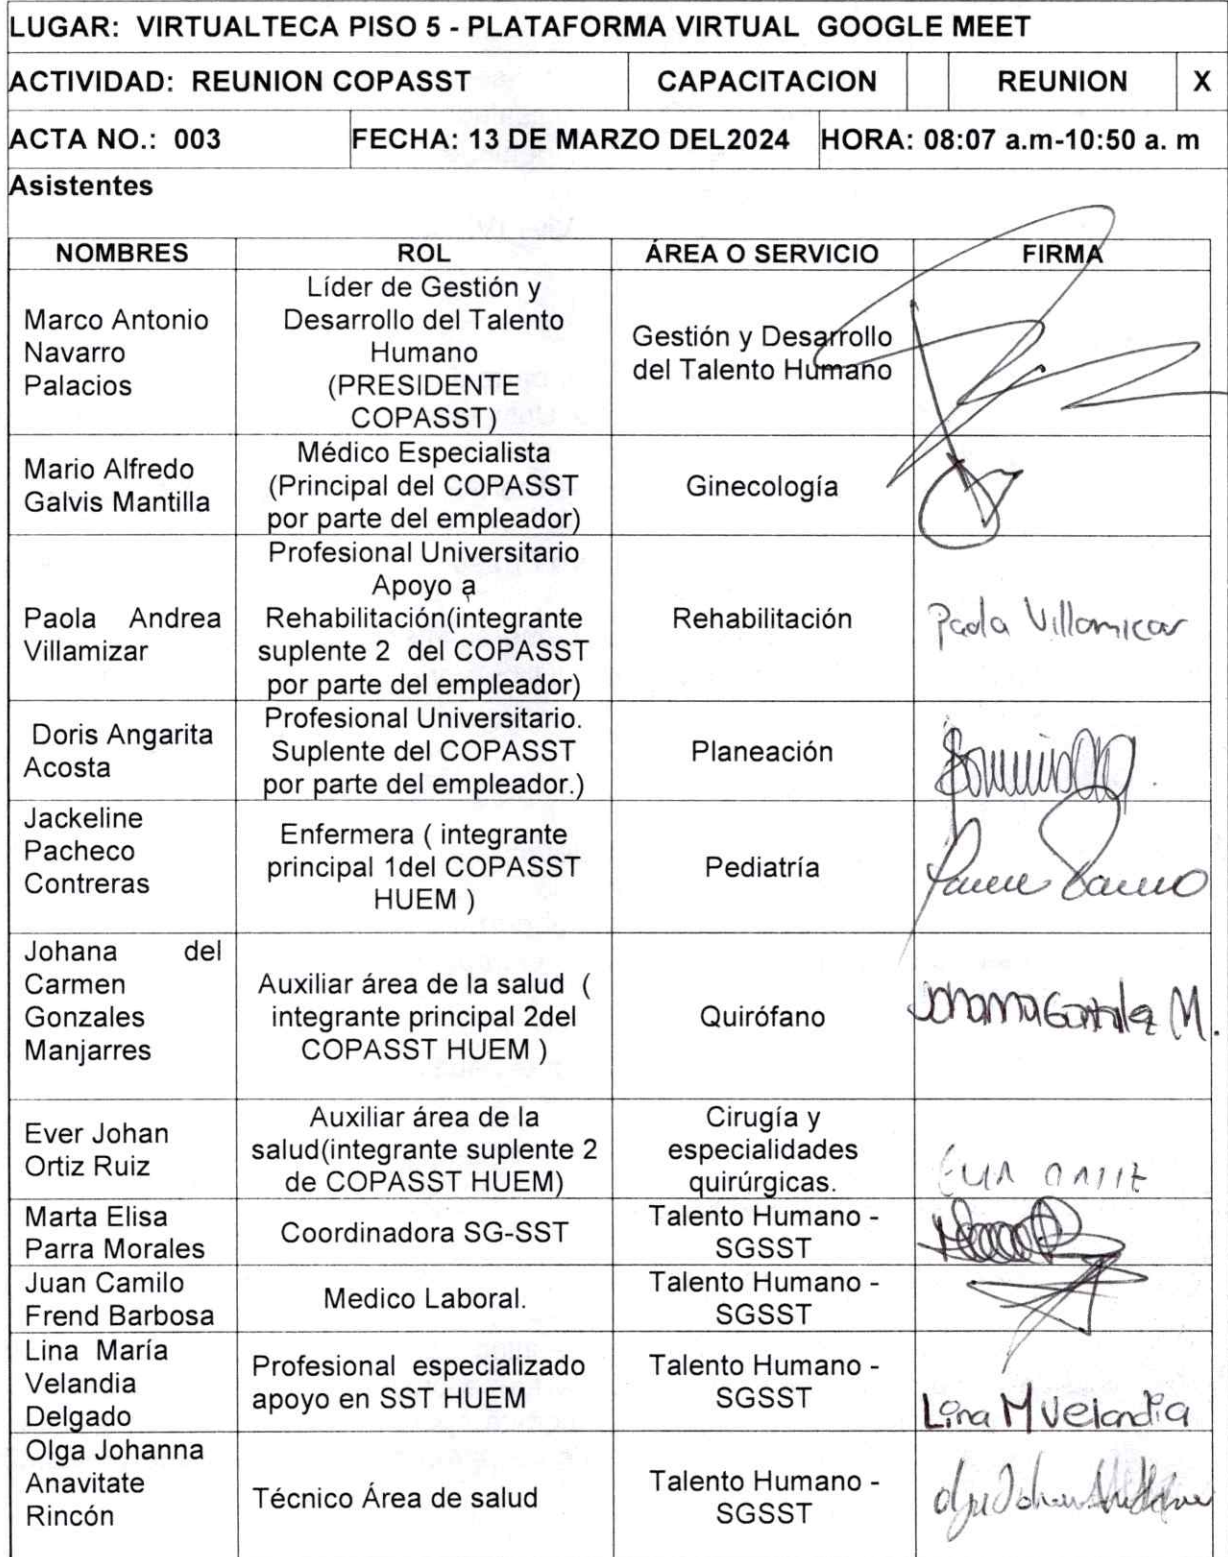 LUGAR: VIRTUALTECA PISO 5 - PLATAFORMA VIRTUAL GOOGLE MEET
ACTIVIDAD: REUNION COPASST CAPACITACION REUNION X
ACTA NO.: 003 FECHA: 13 DE MARZO DEL2024 HORA: 08:07 a.m-10:50 a. m
Asistentes
NOMBRES ROL ÁREA O SERVICIO FIRMA
Marco Antonio
Navarro
Palacios
Líder de Gestión y
Desarrollo del Talento
Humano
(PRESIDENTE
COPASST)
Gestión y Desarrollo
del Talento Humano
Mario Alfredo
Galvis Mantilla
Médico Especialista
(Principal del COPASST
por parte del empleador)
Ginecología
Paola Andrea
Villamizar
Profesional Universitario
Apoyo a
Rehabilitación(integrante
suplente 2 del COPASST
por parte del empleador)
Rehabilitación
Paola Villamizar
Doris Angarita
Acosta
Profesional Universitario.
Suplente del COPASST
por parte del empleador.)
Planeación
Jackeline
Pacheco
Contreras
Enfermera ( integrante
principal 1del COPASST
HUEM )
Pediatría
Johana del
Carmen
Gonzales
Manjarres
Auxiliar área de la salud (
integrante principal 2del
COPASST HUEM )
Quirófano
Johanna González M.
Ever Johan
Ortiz Ruiz
Auxiliar área de la
salud(integrante suplente 2
de COPASST HUEM)
Cirugía y
especialidades
quirúrgicas.
Marta Elisa
Parra Morales
Coordinadora SG-SST
Talento Humano -
SGSST
Juan Camilo
Frend Barbosa
Medico Laboral.
Talento Humano -
SGSST
Lina María
Velandia
Delgado
Profesional especializado
apoyo en SST HUEM
Talento Humano -
SGSST
Lina M Velandia
Olga Johanna
Anavitate
Rincón
Técnico Área de salud
Talento Humano -
SGSST